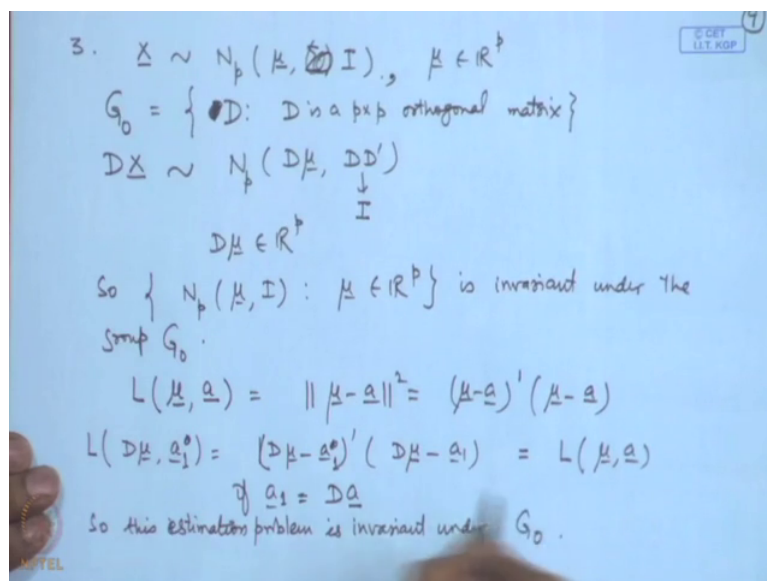 4
© CET
I.I.T. KGP
3. X ~ N_p ( μ, I )., μ ∈ ℝ^p
G_0 = { D: D is a p×p orthogonal matrix }
DX ~ N_p ( Dμ, DD' )
↓
I
Dμ ∈ ℝ^p
So { N_p (μ, I) : μ ∈ ℝ^p } is invariant under the
group G_0 .
L ( μ, a ) = || μ - a ||² = (μ-a)' ( μ - a )
L( Dμ, a_1 ) = ( Dμ - a_1 )' ( Dμ - a_1 ) = L ( μ, a )
if a_1 = Da
So this estimation problem is invariant under G_0 .
NPTEL